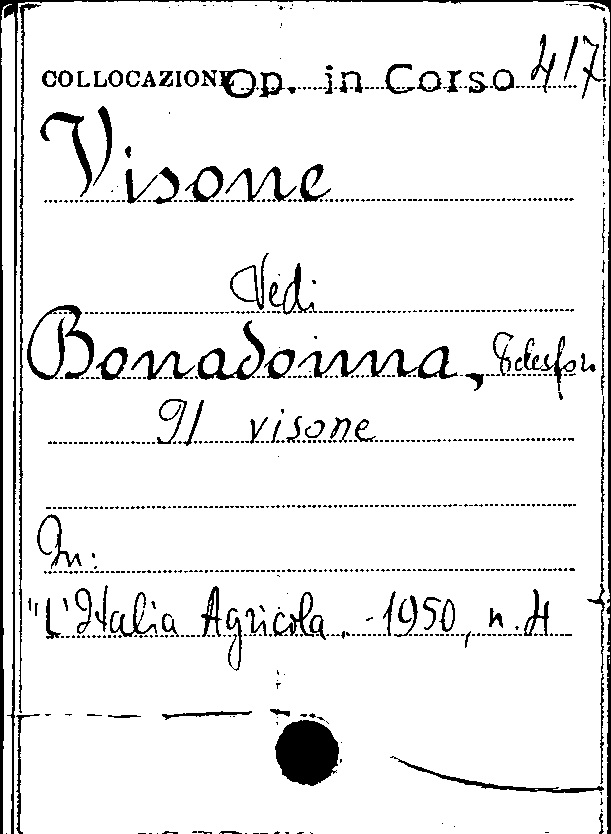 COLLOCAZIONE Op. in Corso 417
Visone
Vedi
Bonadonna, Telesfor.
Il visone
In:
"L'Italia Agricola. - 1950, n. 4